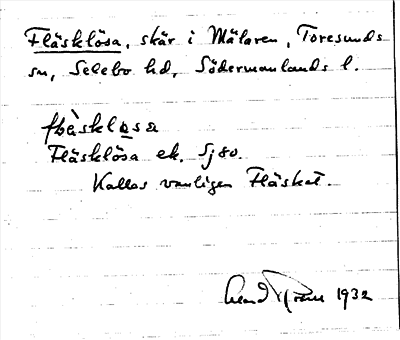 Fläsklösa, skär i Mälaren, Toresunds
sn, Selebo hd, Södermanlands l.
Fläsklösa ek. Sj 80.
Kallas vanligen Fläsket.
1932